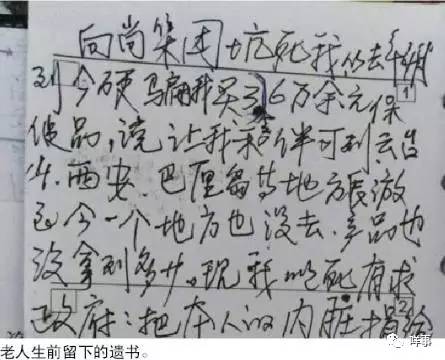 向尚集团坑死我从去年
到今硬骗我买了6万余元保
健品,说让我和老伴可到云台
山、西安、巴厘岛等地方旅游
至今一个地方也没去,产品也
没拿到多少。现我以死有求
政府:把本人的内脏捐给
老人生前留下的遗书。